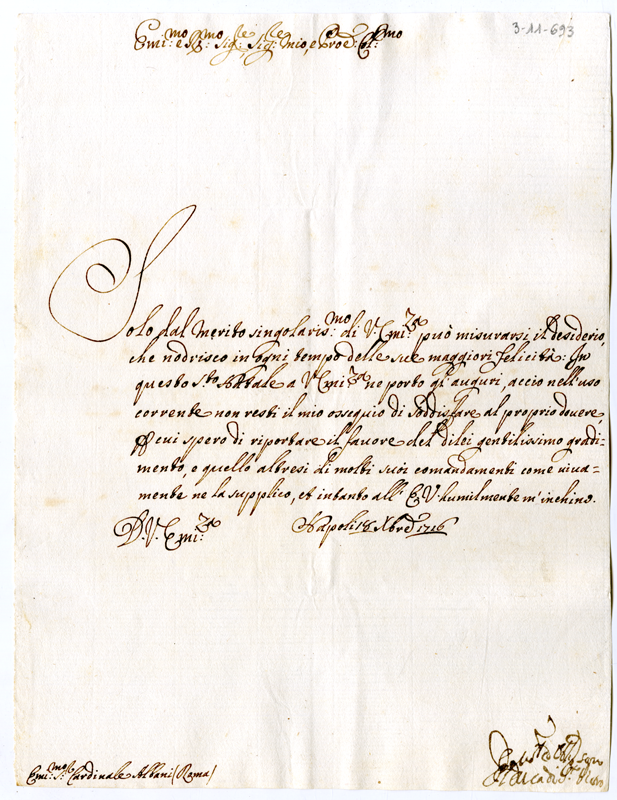 3-11-693
Emi:mo e R:mo Sig:re Sig:re mio, e Prõe: Col:mo
Solo dal merito singolaris:mo di V Emi:za può misurarsi il desiderio,
che nodrisco in ogni tempo delle sue maggiori felicità. In
questo S.to Natale a V Emi:za ne porto gl'auguri, acciò nell'uso
corrente non resti il mio ossequio di soddisfare al proprio douere,
cui spero di riportare il fauore del di lei gentilissimo gradi-
mento, e quello altresi di molti suoi comandamenti come uiua-
mente ne la supplico, et intanto all' E.V. humilmente m'inchino.
D. V. Emi:za Napoli 18 Xbre 1716
Emi:mo S.r Cardinale Albani (Roma)